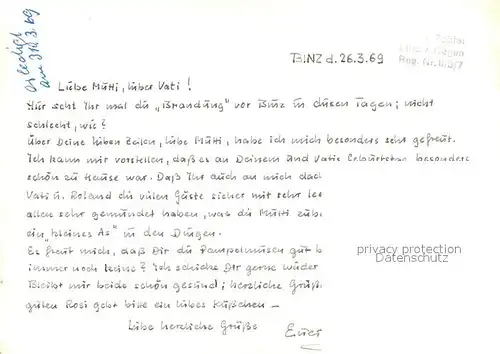 erledigt
am 31.3.69
BINZ d. 26.3.69
Liebe Mutti, lieber Vati!
Hier seht Ihr mal die „Brandung" vor Binz in diesen Tagen; nicht
schlecht, wie?
Über Deine lieben Zeilen, liebe Mutti, habe ich mich besonders sehr gefreut.
Ich kann mir vorstellen, daß es an Deinem und Vatis Geburtstag besonders
schön zu Hause war. Daß Ihr auch an mich dach
Vati u. Roland die vielen Gäste sicher mit sehr
allen sehr gemundet haben, was die Mutti
ein „kleines As" in den Dingen.
Es freut mich, daß Dir die Pampelmusen gut b
immer noch keine? Ich schicke Dir gerne wieder
Bleibt mir beide schön gesund; herzliche Grüß
guten Rosi gebt bitte ein liebes Küßchen –
Liebe herzliche Grüße
Euer
privacy protection
Datenschutz